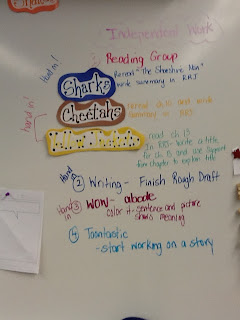 Independent Work
Hand in!
1) Reading Group
Sharks
Reread "The Shoeshine Man"
write summary in RRJ
hand in!
Cheetahs
reread ch. 12 and write
summary in RRJ
read ch. 13
In RRJ- write a title
for ch. 13 and use support
from chapter to explain title
Hand in
2) Writing - Finish Rough Draft
Hand in
3) WOW - abode
color it - sentence and picture
shows meaning
4) Toontastic
- start working on a story